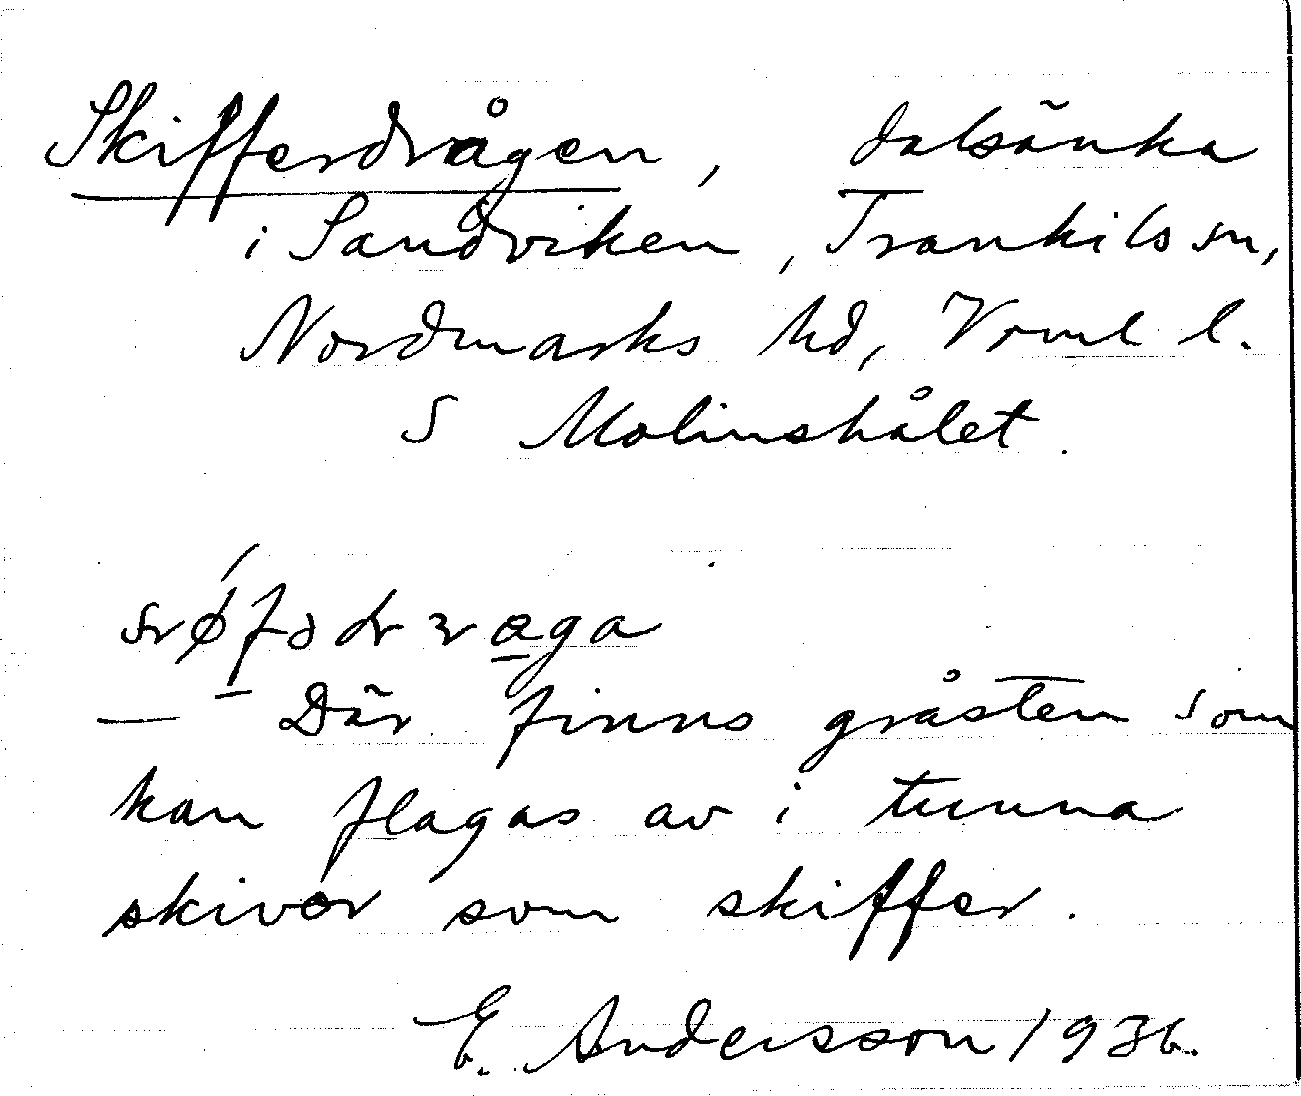 Skifferdrågen, dalsänka
i Sandviken, Trankils sn,
Nordmarks hd, Vrml l.
S Molinshålet.
— Där finns gråsten som
kan flagas av i tunna
skivor som skiffer.
E. Andersson 1936.